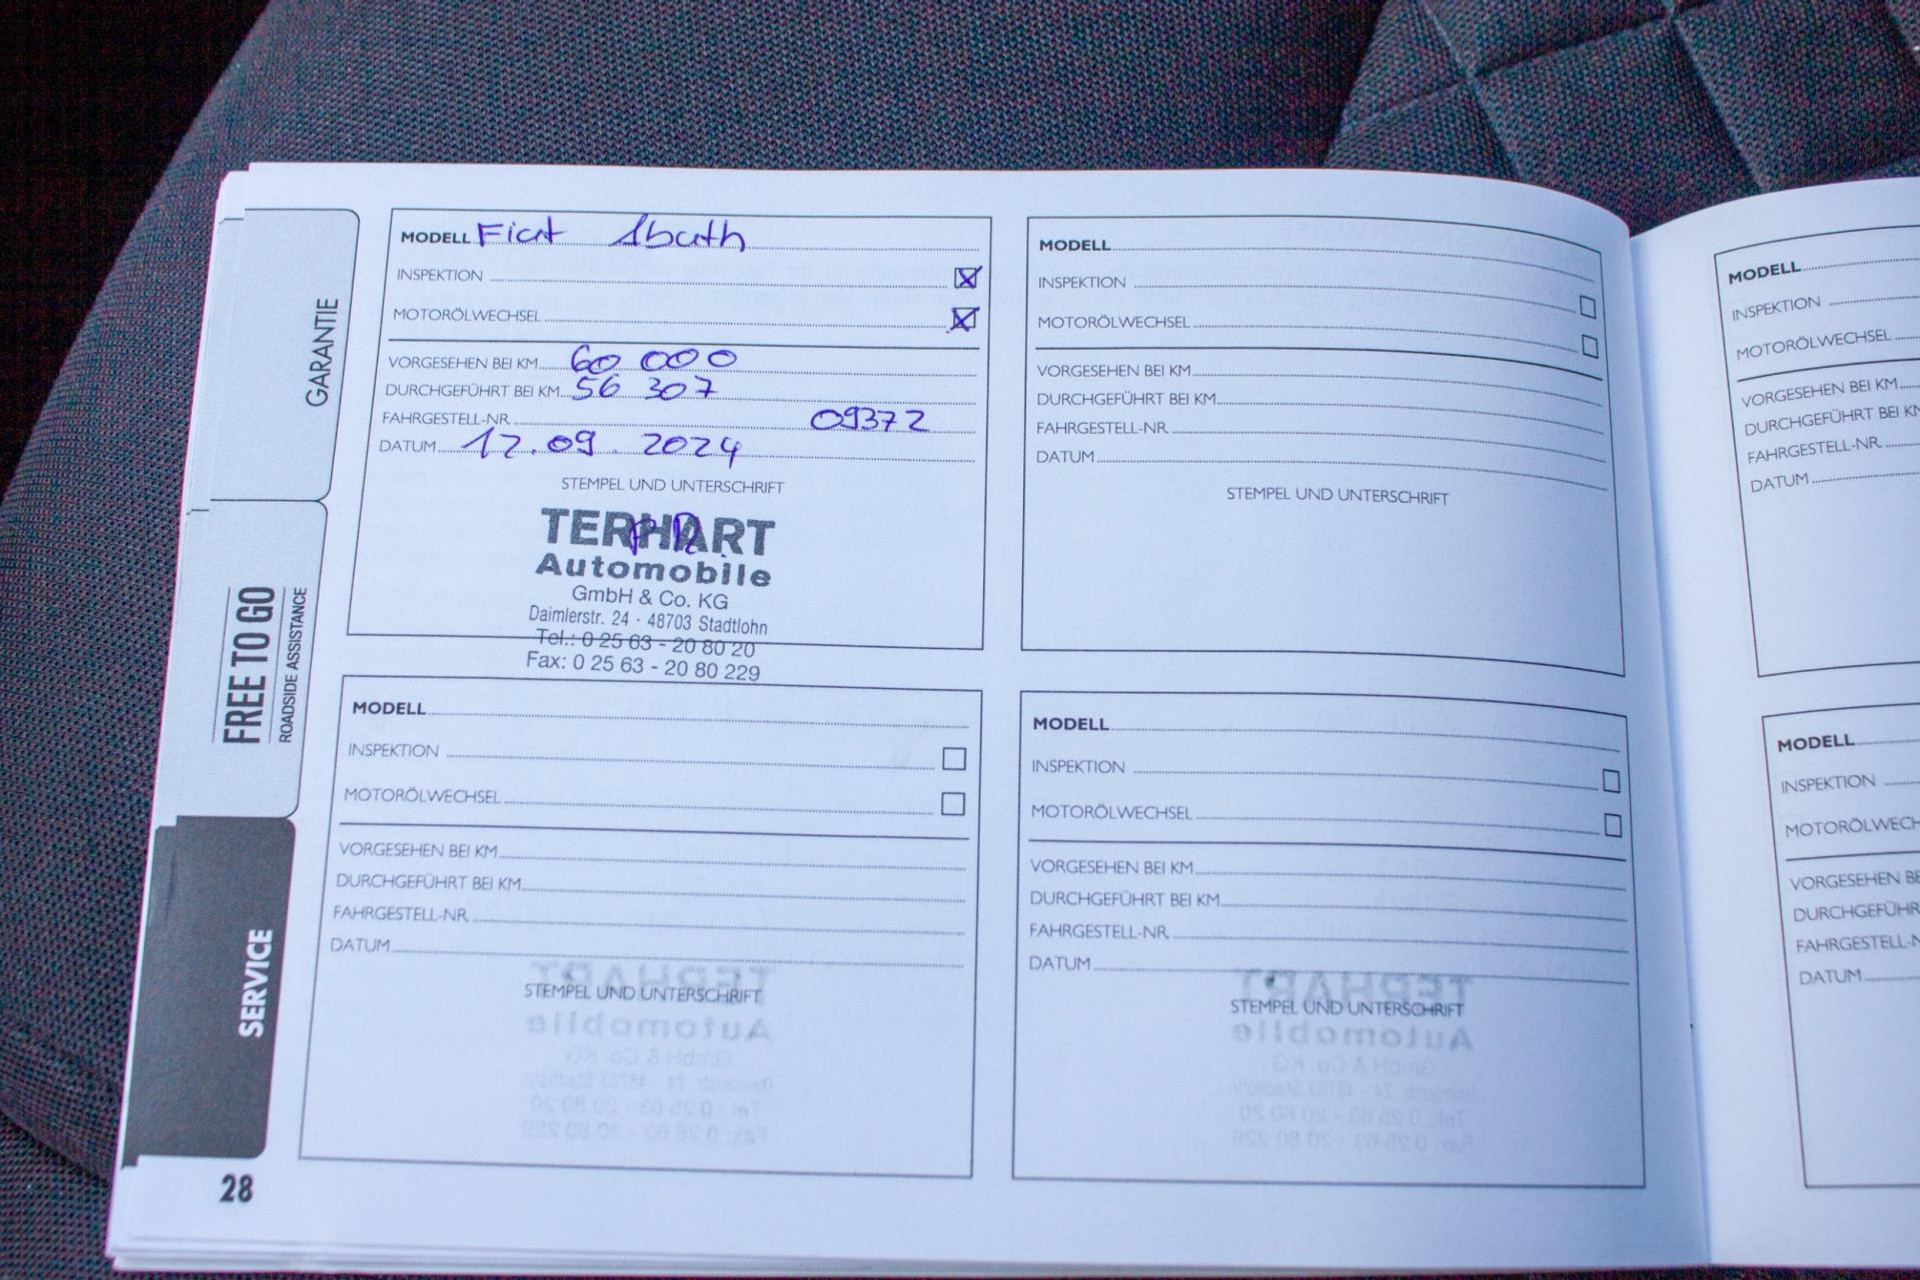 GARANTIE
FREE TO GO
ROADSIDE ASSISTANCE
SERVICE
28
MODELL Fiat Abath
INSPEKTION
MOTORÖLWECHSEL
VORGESEHEN BEI KM 60 000
DURCHGEFÜHRT BEI KM 56 307
FAHRGESTELL-NR. 09372
DATUM 12.09.2024
STEMPEL UND UNTERSCHRIFT
TERHART
Automobile
GmbH & Co. KG
Daimlerstr. 24 · 48703 Stadtlohn
Tel.: 0 25 63 - 20 80 20
Fax: 0 25 63 - 20 80 229
MODELL
INSPEKTION
MOTORÖLWECHSEL
VORGESEHEN BEI KM
DURCHGEFÜHRT BEI KM
FAHRGESTELL-NR.
DATUM
STEMPEL UND UNTERSCHRIFT
MODELL
INSPEKTION
MOTORÖLWECHSEL
VORGESEHEN BEI KM
DURCHGEFÜHRT BEI KM
FAHRGESTELL-NR.
DATUM
STEMPEL UND UNTERSCHRIFT
MODELL
INSPEKTION
MOTORÖLWECHSEL
VORGESEHEN BEI KM
DURCHGEFÜHRT BEI KM
FAHRGESTELL-NR.
DATUM
STEMPEL UND UNTERSCHRIFT
MODELL
INSPEKTION
MOTORÖLWECHSEL
VORGESEHEN BEI KM
DURCHGEFÜHRT BEI
FAHRGESTELL-NR.
DATUM
MODELL
INSPEKTION
VORGESEHEN
DATUM